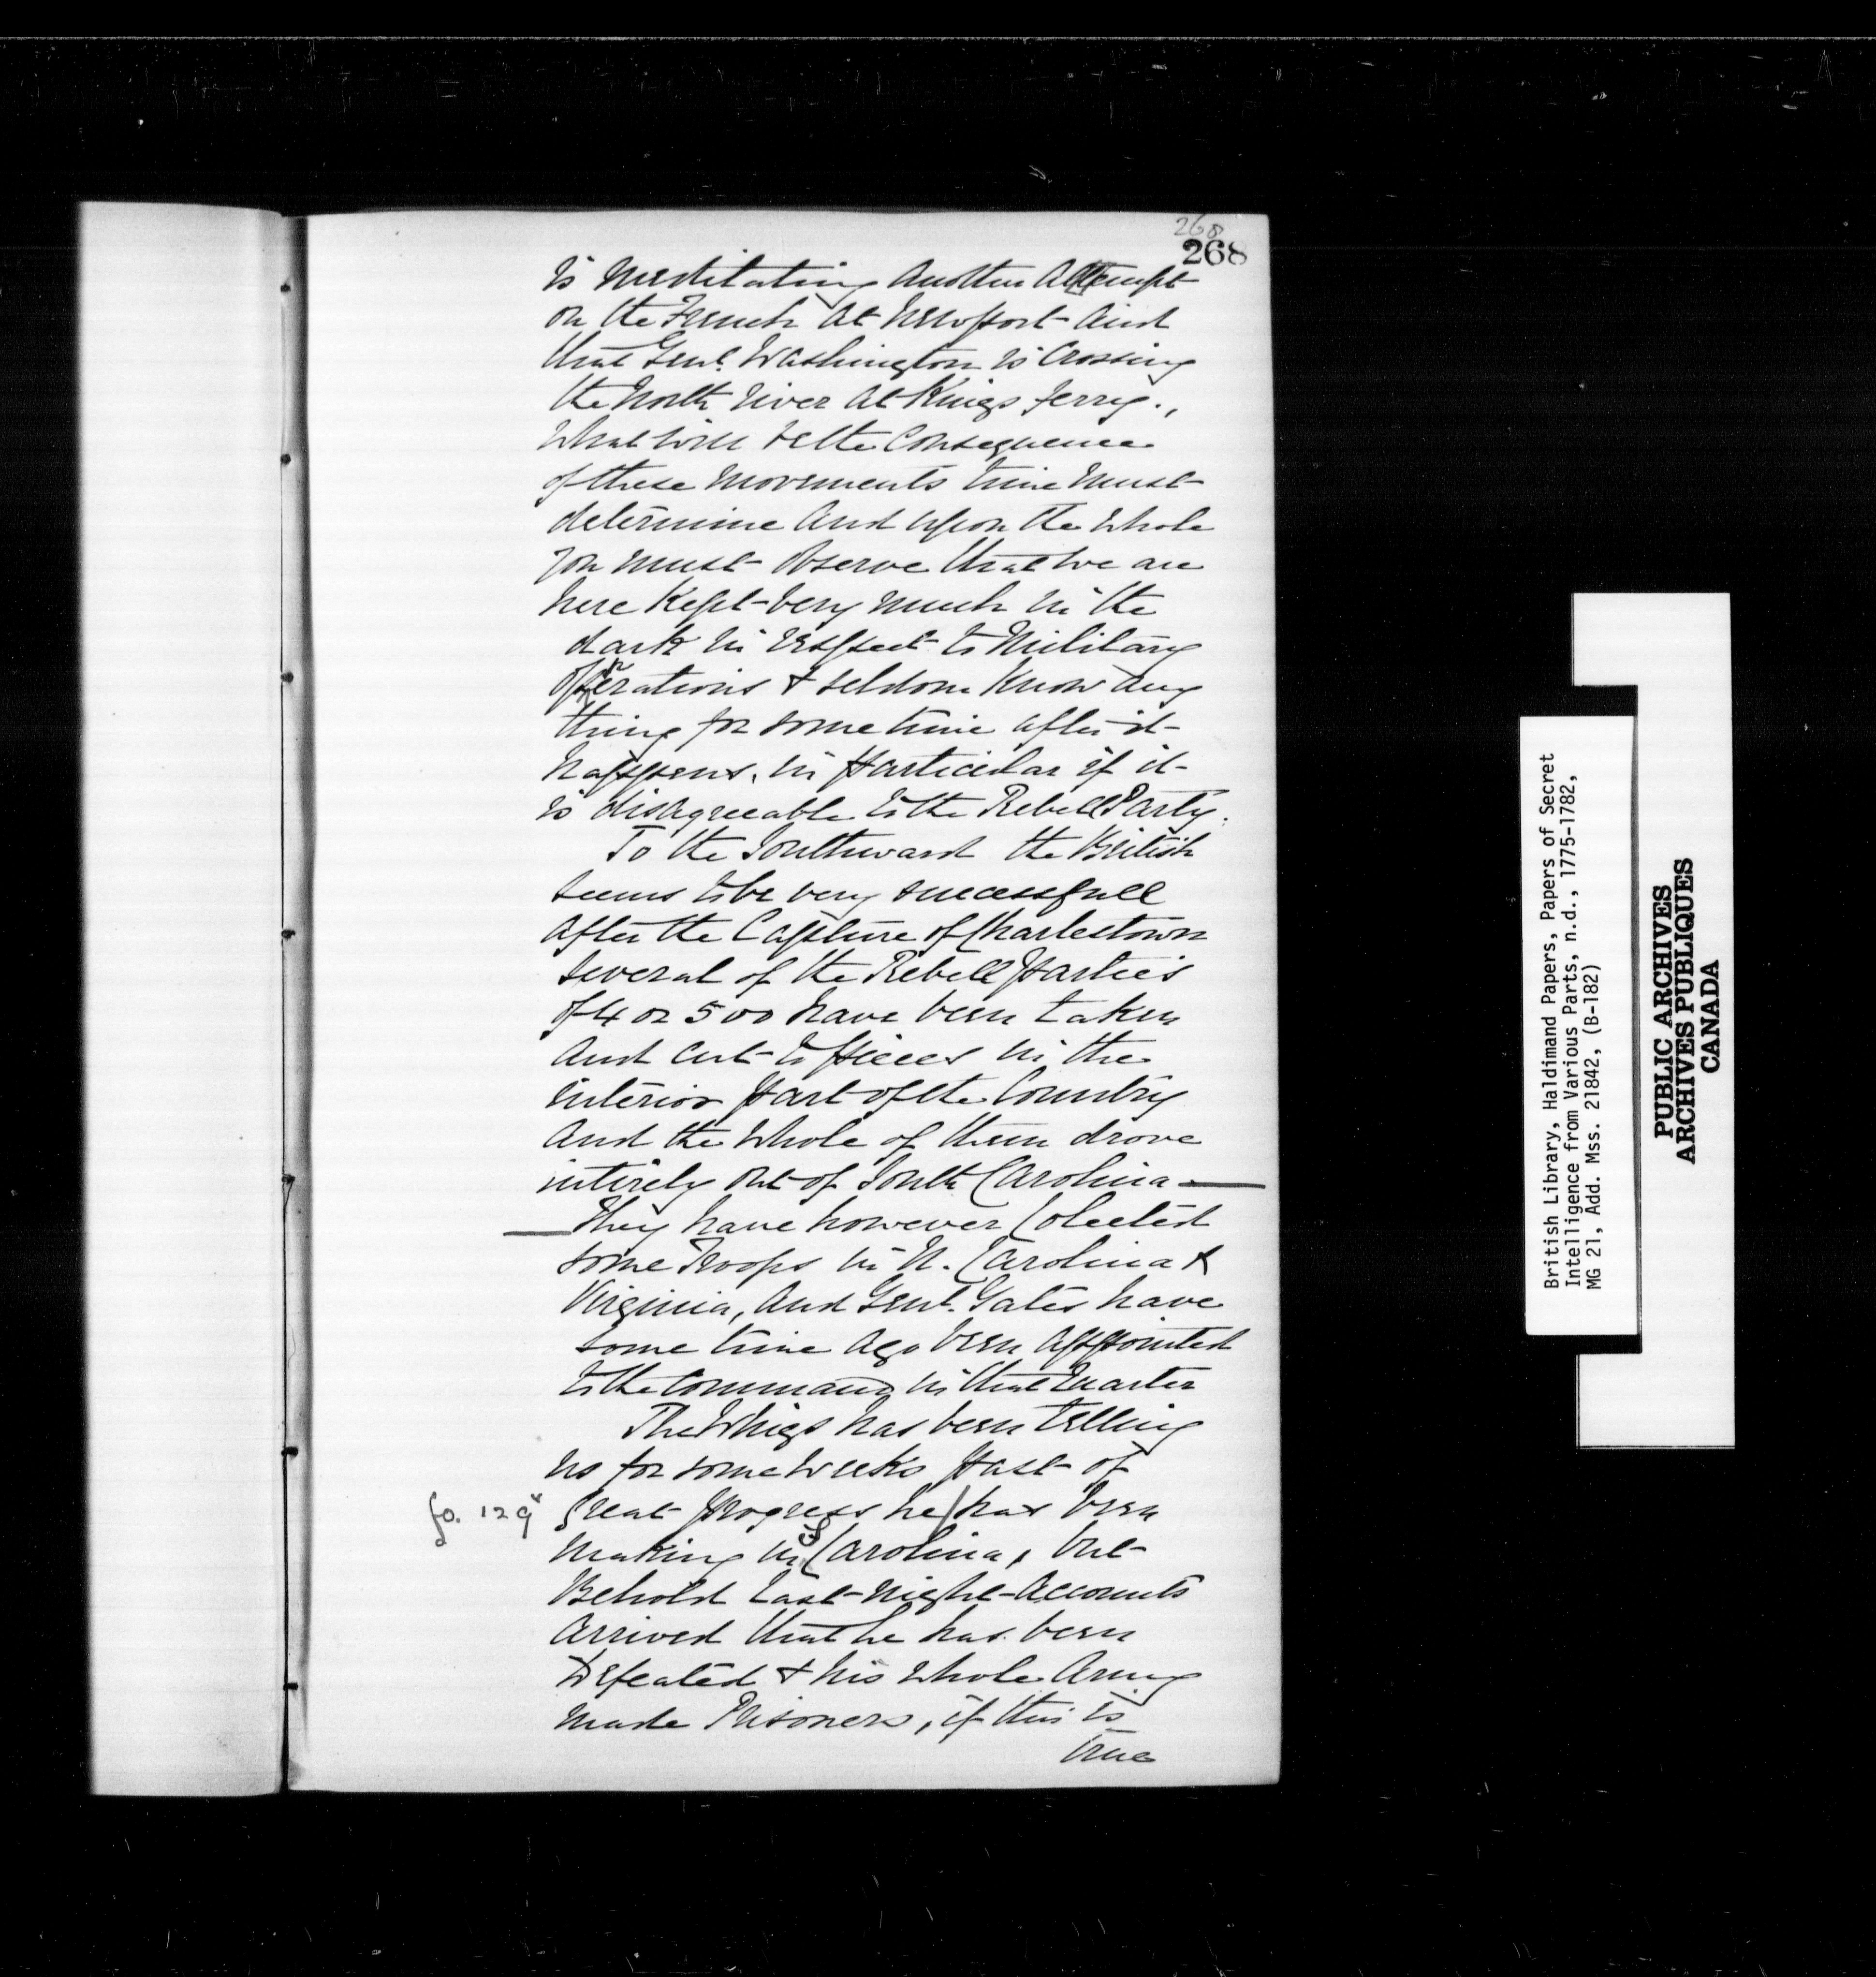 268
268
is meditating another attempt
on the French at Newport and
that Genl. Washington is Crossing
the North river at Kings ferry.,
What will be the Consequence
of these movements time must
determine and upon the whole
you must observe that we are
here Kept very much in the
dark in respect to Military
operations & seldom Know any
thing for some time after it
happens, in particular if it
is disagreeable to the Rebell Party.
To the Southward the British
seems to be very successfull
after the Capture of Charlestown
several of the Rebell parties
of 4 or 500 have been taken
and cut to pieces in the
interior part of the Country
and the whole of them drove
intirely out of South Carolina —
— They have however Colected
some Troops in N. Carolina &
Virginia, and Genl. Gates have
some time ago been appointed
to the Command in that Quarter
The Whigs has been telling
us for some weeks past of
fo. 129
great progress he/has been
making in S Carolina, but
Behold last night accounts
arrived that he has been
Defeated & his whole Army
made Prisoners, if this is
true
British Library, Haldimand Papers, Papers of Secret
Intelligence from Various Parts, n.d., 1775-1782,
MG 21, Add. Mss. 21842, (B-182)
PUBLIC ARCHIVES
ARCHIVES PUBLIQUES
CANADA